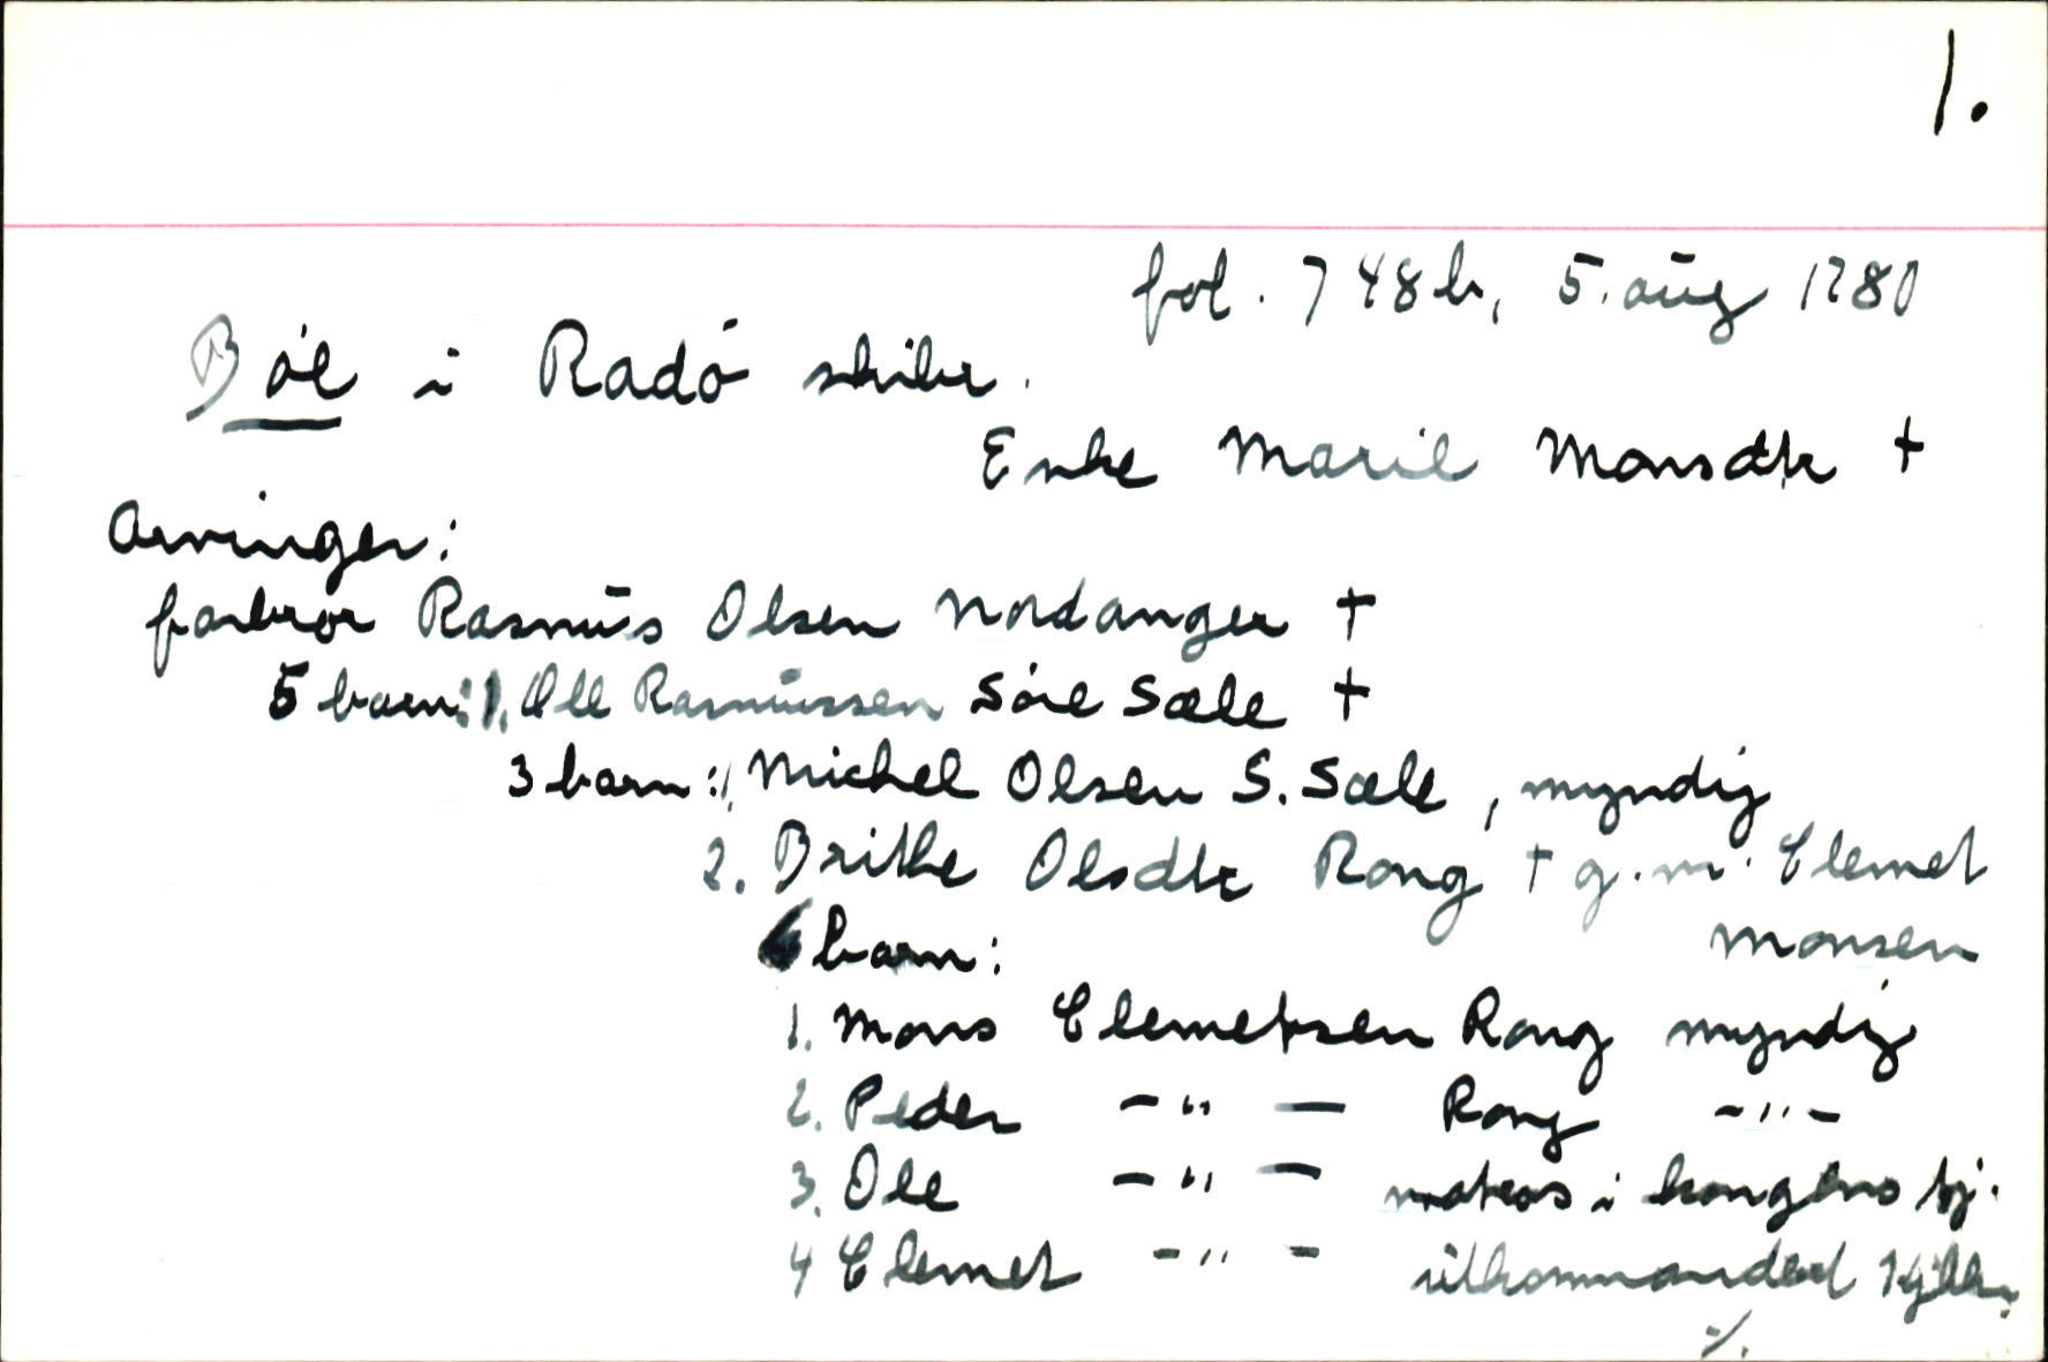 1.
fol. 748b, 5. aug 1780
Bøe i Radø skibr.
Enke Marie Monsdtr †
Arvinger:
farbror Rasmus Olsen Nordanger †
5 barn: 1. Ole Rasmussen Søre Sæle †
3 barn: 1. Michel Olsen S. Sæle, myndig
2. Brithe Olsdtr Rong † g.m. Clemet
Monsen
6 barn:
1. Mons Clemetsen Rong myndig
2. Peder -"- Rong -"-
3. Ole -"- matros i kongens tj.
4 Clemet -"- utkommanderd
./.